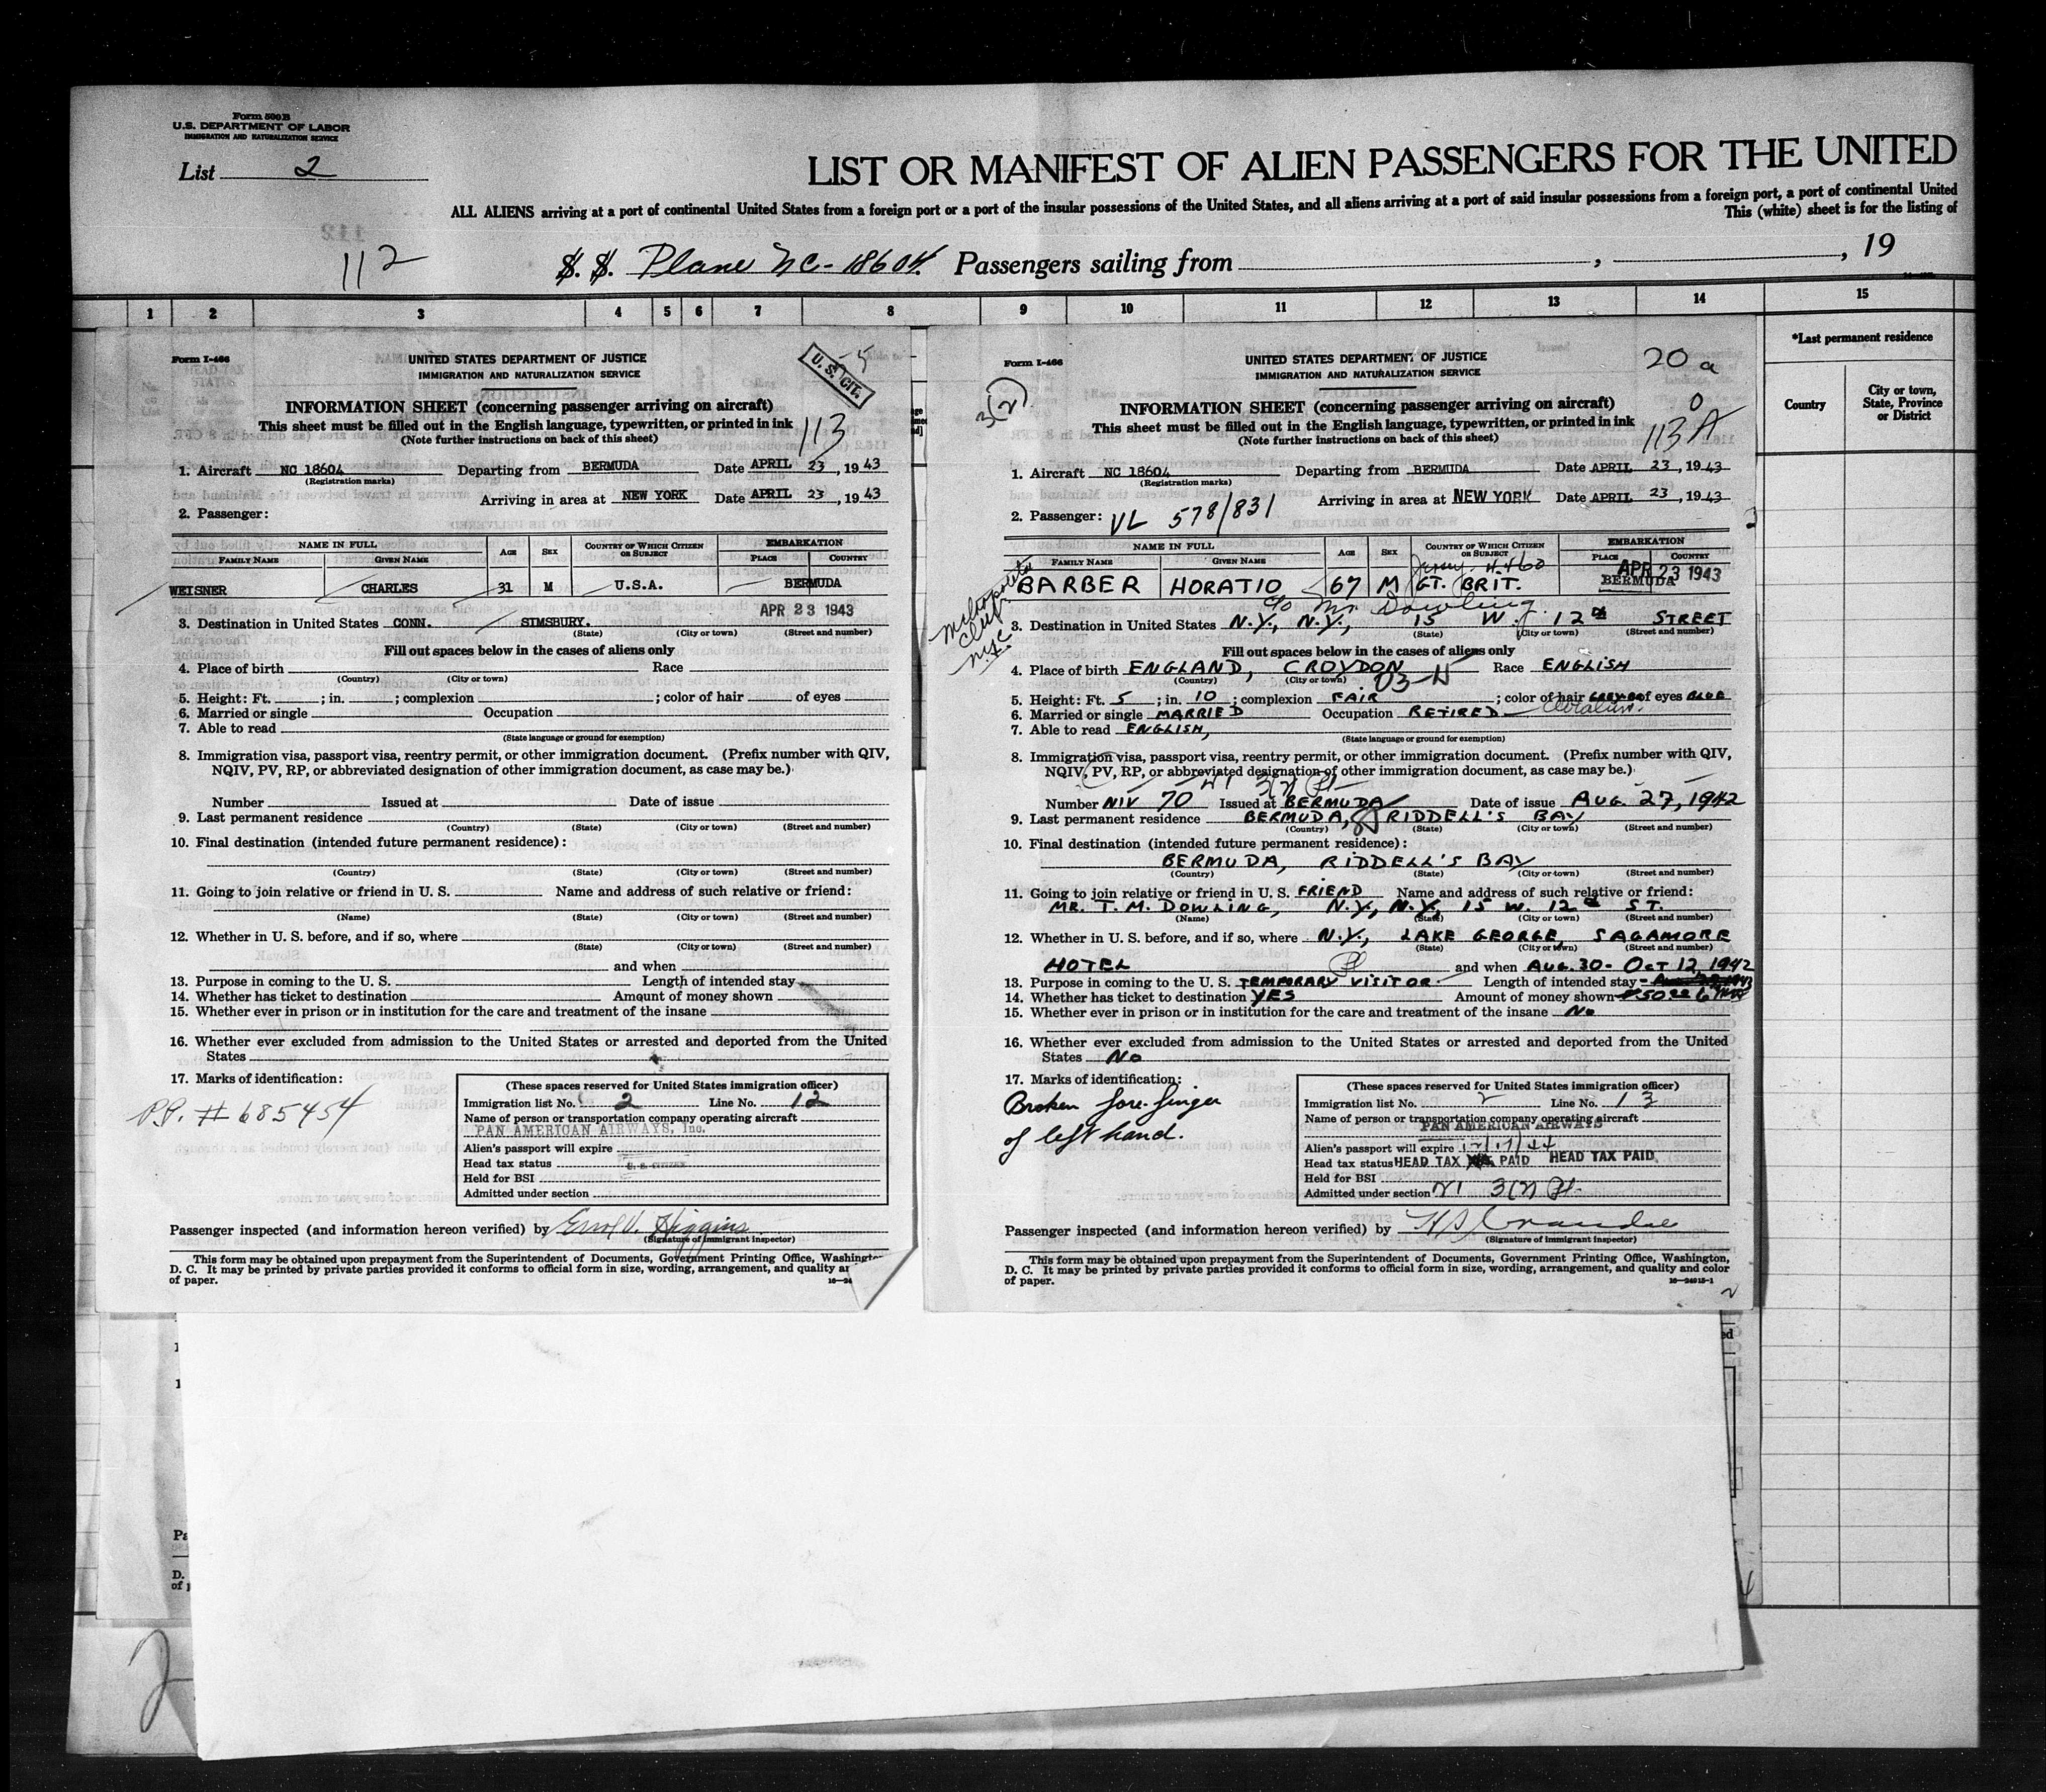 Form 500B
U.S. DEPARTMENT OF LABOR
IMMIGRATION AND NATURALIZATION SERVICE
List 2
LIST OR MANIFEST OF ALIEN PASSENGERS FOR THE UNITED
ALL ALIENS arriving at a port of continental United States from a foreign port or a port of the insular possessions of the United States, and all aliens arriving at a port of said insular possessions from a foreign port, a port of continental United
This (white) sheet is for the listing of
112
S. S. Plane NC-18604 Passengers sailing from , , 19
1 2 3 4 5 6 7 8 9 10 11 12 13 14 15
*Last permanent residence
Country
City or town, State, Province or District
Form I-466
UNITED STATES DEPARTMENT OF JUSTICE
IMMIGRATION AND NATURALIZATION SERVICE
U. S. CIT.
5
INFORMATION SHEET (concerning passenger arriving on aircraft)
This sheet must be filled out in the English language, typewritten, or printed in ink
(Note further instructions on back of this sheet)
113
1. Aircraft NC 18604 Departing from BERMUDA Date APRIL 23, 1943
(Registration marks)
Arriving in area at NEW YORK Date APRIL 23, 1943
2. Passenger:
NAME IN FULL AGE SEX COUNTRY OF WHICH CITIZEN OR SUBJECT EMBARKATION
FAMILY NAME GIVEN NAME PLACE COUNTRY
WEISNER CHARLES 31 M U.S.A. BERMUDA
APR 23 1943
3. Destination in United States CONN. SIMSBURY.
(State) (City or town) (Street and number)
Fill out spaces below in the cases of aliens only
4. Place of birth Race
(Country) (City or town)
5. Height: Ft. ; in. ; complexion ; color of hair of eyes
6. Married or single Occupation
7. Able to read
(State language or ground for exemption)
8. Immigration visa, passport visa, reentry permit, or other immigration document. (Prefix number with QIV,
NQIV, PV, RP, or abbreviated designation of other immigration document, as case may be.)
Number Issued at Date of issue
9. Last permanent residence
(Country) (State) (City or town) (Street and number)
10. Final destination (intended future permanent residence):
(Country) (State) (City or town) (Street and number)
11. Going to join relative or friend in U. S. Name and address of such relative or friend:
(Name) (State) (City or town) (Street and number)
12. Whether in U. S. before, and if so, where
(State) (City or town) (Street and number)
and when
13. Purpose in coming to the U. S. Length of intended stay
14. Whether has ticket to destination Amount of money shown
15. Whether ever in prison or in institution for the care and treatment of the insane
16. Whether ever excluded from admission to the United States or arrested and deported from the United
States
17. Marks of identification:
P.P. # 685454
(These spaces reserved for United States immigration officer)
Immigration list No. 2 Line No. 12
Name of person or transportation company operating aircraft
PAN AMERICAN AIRWAYS, Inc.
Alien's passport will expire
Head tax status U. S. CITIZEN
Held for BSI
Admitted under section
Passenger inspected (and information hereon verified) by Errol V. Higgins
(Signature of immigrant inspector)
This form may be obtained upon prepayment from the Superintendent of Documents, Government Printing Office, Washington
D. C. It may be printed by private parties provided it conforms to official form in size, wording, arrangement, and quality
of paper.
Form I-466
UNITED STATES DEPARTMENT OF JUSTICE
IMMIGRATION AND NATURALIZATION SERVICE
20 a
3(2)
INFORMATION SHEET (concerning passenger arriving on aircraft)
This sheet must be filled out in the English language, typewritten, or printed in ink
(Note further instructions on back of this sheet)
0
113 A
1. Aircraft NC 18604 Departing from BERMUDA Date APRIL 23, 1943
(Registration marks)
Arriving in area at NEW YORK Date APRIL 23, 1943
2. Passenger: VL 578/831
NAME IN FULL AGE SEX COUNTRY OF WHICH CITIZEN OR SUBJECT EMBARKATION
FAMILY NAME GIVEN NAME PLACE COUNTRY
BARBER HORATIO 67 M GT. BRIT. BERMUDA
APR 23 1943
Metropolitan Club N.Y.C.
c/o Mr Dowling
3. Destination in United States N.Y., N.Y., 15 W. 12th STREET
(State) (City or town) (Street and number)
Fill out spaces below in the cases of aliens only
4. Place of birth ENGLAND, CROYDON Race ENGLISH
(Country) (City or town)
5. Height: Ft. 5 ; in. 10 ; complexion FAIR ; color of hair GREY of eyes BLUE
6. Married or single MARRIED Occupation RETIRED
7. Able to read ENGLISH,
(State language or ground for exemption)
8. Immigration visa, passport visa, reentry permit, or other immigration document. (Prefix number with QIV,
NQIV, PV, RP, or abbreviated designation of other immigration document, as case may be.)
Number NIV 70 Issued at BERMUDA Date of issue AUG. 27, 1942
9. Last permanent residence BERMUDA, RIDDELL'S BAY
(Country) (State) (City or town) (Street and number)
10. Final destination (intended future permanent residence):
BERMUDA, RIDDELL'S BAY
(Country) (State) (City or town) (Street and number)
11. Going to join relative or friend in U. S. FRIEND Name and address of such relative or friend:
MR. T. M. DOWLING, N.Y., N.Y, 15 W. 12th ST.
(Name) (State) (City or town) (Street and number)
12. Whether in U. S. before, and if so, where N.Y., LAKE GEORGE, SAGAMORE
(State) (City or town) (Street and number)
HOTEL and when AUG. 30 - OCT 12, 1942
13. Purpose in coming to the U. S. TEMPORARY VISITOR Length of intended stay
14. Whether has ticket to destination YES Amount of money shown
15. Whether ever in prison or in institution for the care and treatment of the insane No
16. Whether ever excluded from admission to the United States or arrested and deported from the United
States No
17. Marks of identification:
Broken fore-finger
of left hand.
(These spaces reserved for United States immigration officer)
Immigration list No. 2 Line No. 13
Name of person or transportation company operating aircraft
PAN AMERICAN AIRWAYS
Alien's passport will expire 12/17/44
Head tax status HEAD TAX PAID HEAD TAX PAID
Held for BSI
Admitted under section
Passenger inspected (and information hereon verified) by
(Signature of immigrant inspector)
This form may be obtained upon prepayment from the Superintendent of Documents, Government Printing Office, Washington,
D. C. It may be printed by private parties provided it conforms to official form in size, wording, arrangement, and quality and color
of paper.
16—24915-1
2